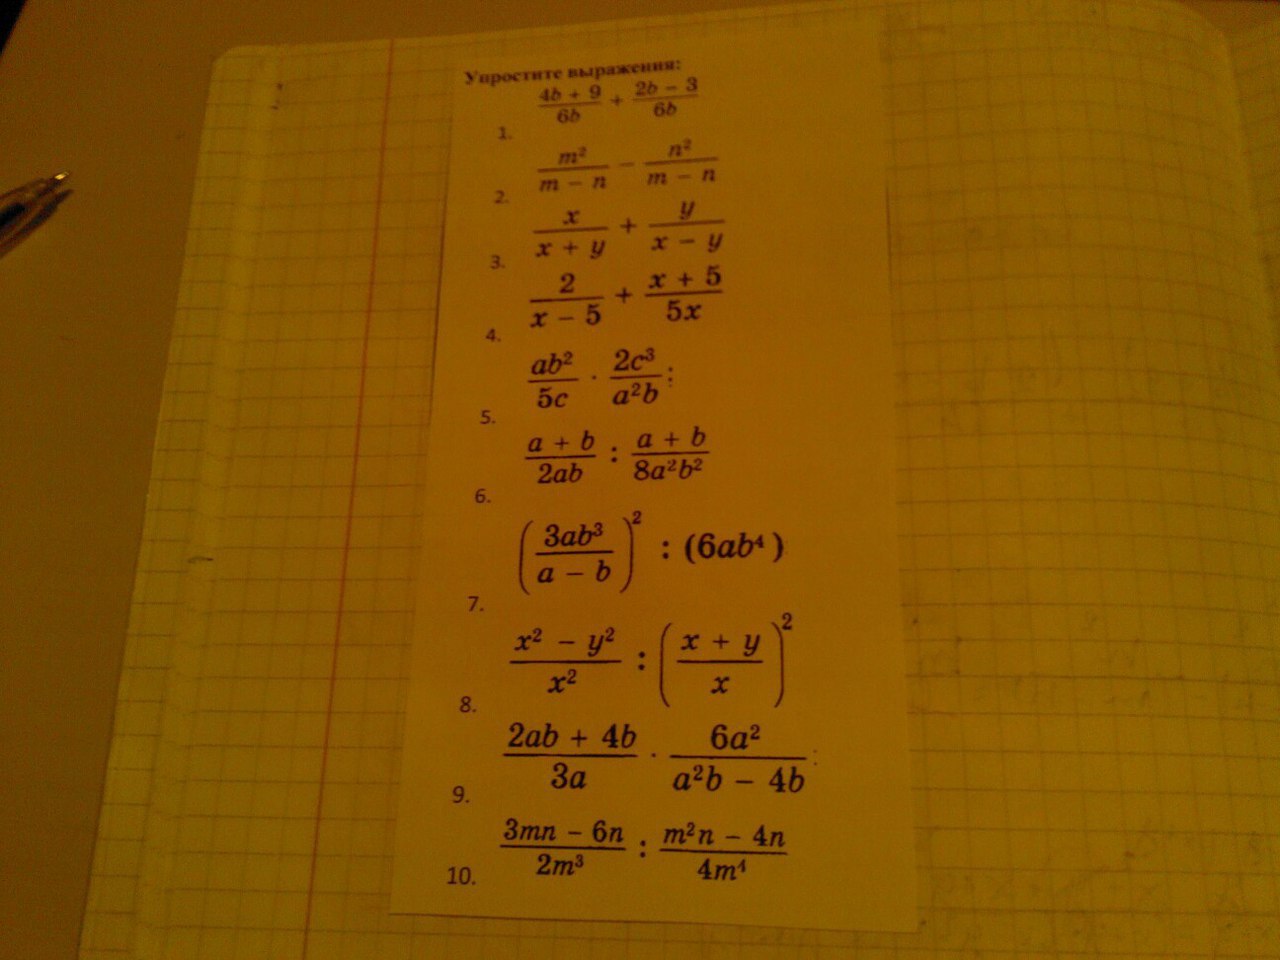 Упростите выражения:
1. \frac{4b + 9}{6b} + \frac{2b - 3}{6b}
2. \frac{m^2}{m - n} - \frac{n^2}{m - n}
3. \frac{x}{x + y} + \frac{y}{x - y}
4. \frac{2}{x - 5} + \frac{x + 5}{5x}
5. \frac{ab^2}{5c} · \frac{2c^3}{a^2b};
6. \frac{a + b}{2ab} : \frac{a + b}{8a^2b^2}
7. \left(\frac{3ab^3}{a - b}\right)^2 : (6ab^4)
8. \frac{x^2 - y^2}{x^2} : \left(\frac{x + y}{x}\right)^2
9. \frac{2ab + 4b}{3a} · \frac{6a^2}{a^2b - 4b};
10. \frac{3mn - 6n}{2m^3} : \frac{m^2n - 4n}{4m^4}